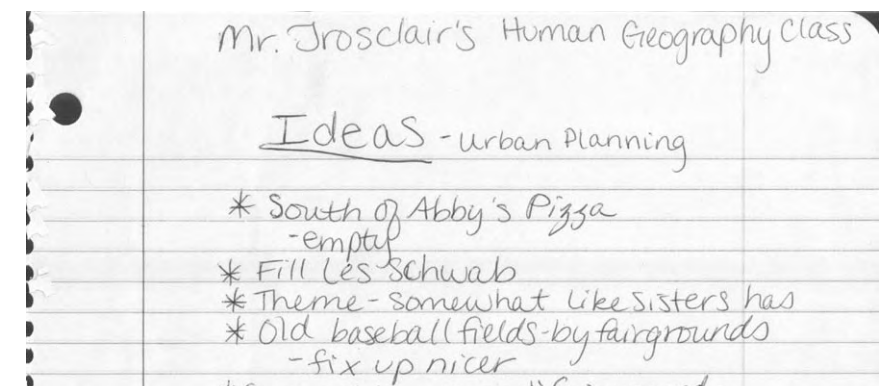 Mr. Trosclair's Human Geography Class
Ideas - Urban Planning
* South of Abby's Pizza
- empty
* Fill Les Schwab
* Theme - Somewhat like Sisters has
* Old baseball fields - by fairgrounds
- fix up nicer